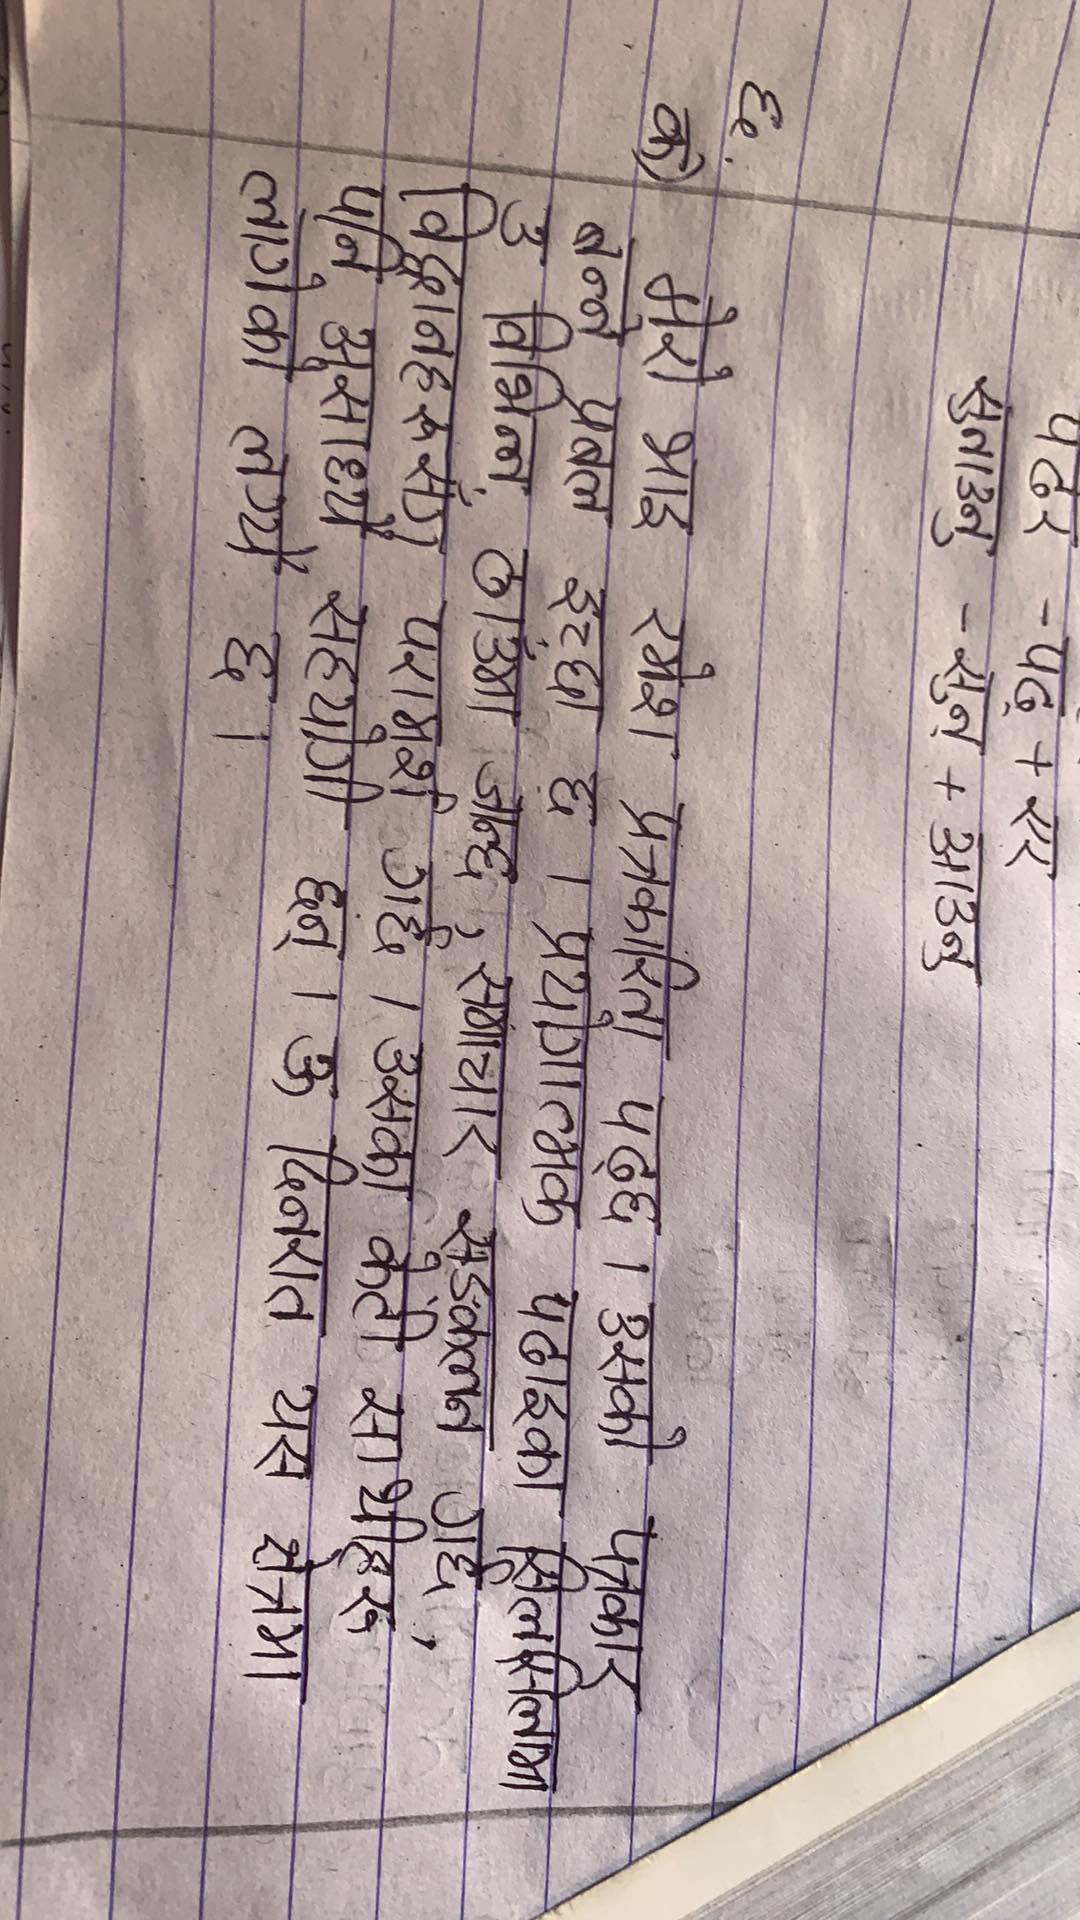 पढेर - पढ् + एर
सुनाउनु - सुन् + आउनु
छ.
क) मेरो भाइ रमेश प्रत्रकारिता पढ्छ । उसको पत्रकार
बन्ने प्रबल इच्छा छ । प्रयोगात्मक पढाइका सिलसिलामा
उ विभिन्न ठाउँमा जान्छ , समाचार सङ्कलन गर्छ ,
विद्वानहरूसँग परामर्श गर्छ । उसका केटी साथीहरू
पनि असाध्यै सहयोगी छन् । ऊ दिनरात यस क्षेत्रमा
लागेको लग्यै छ ।